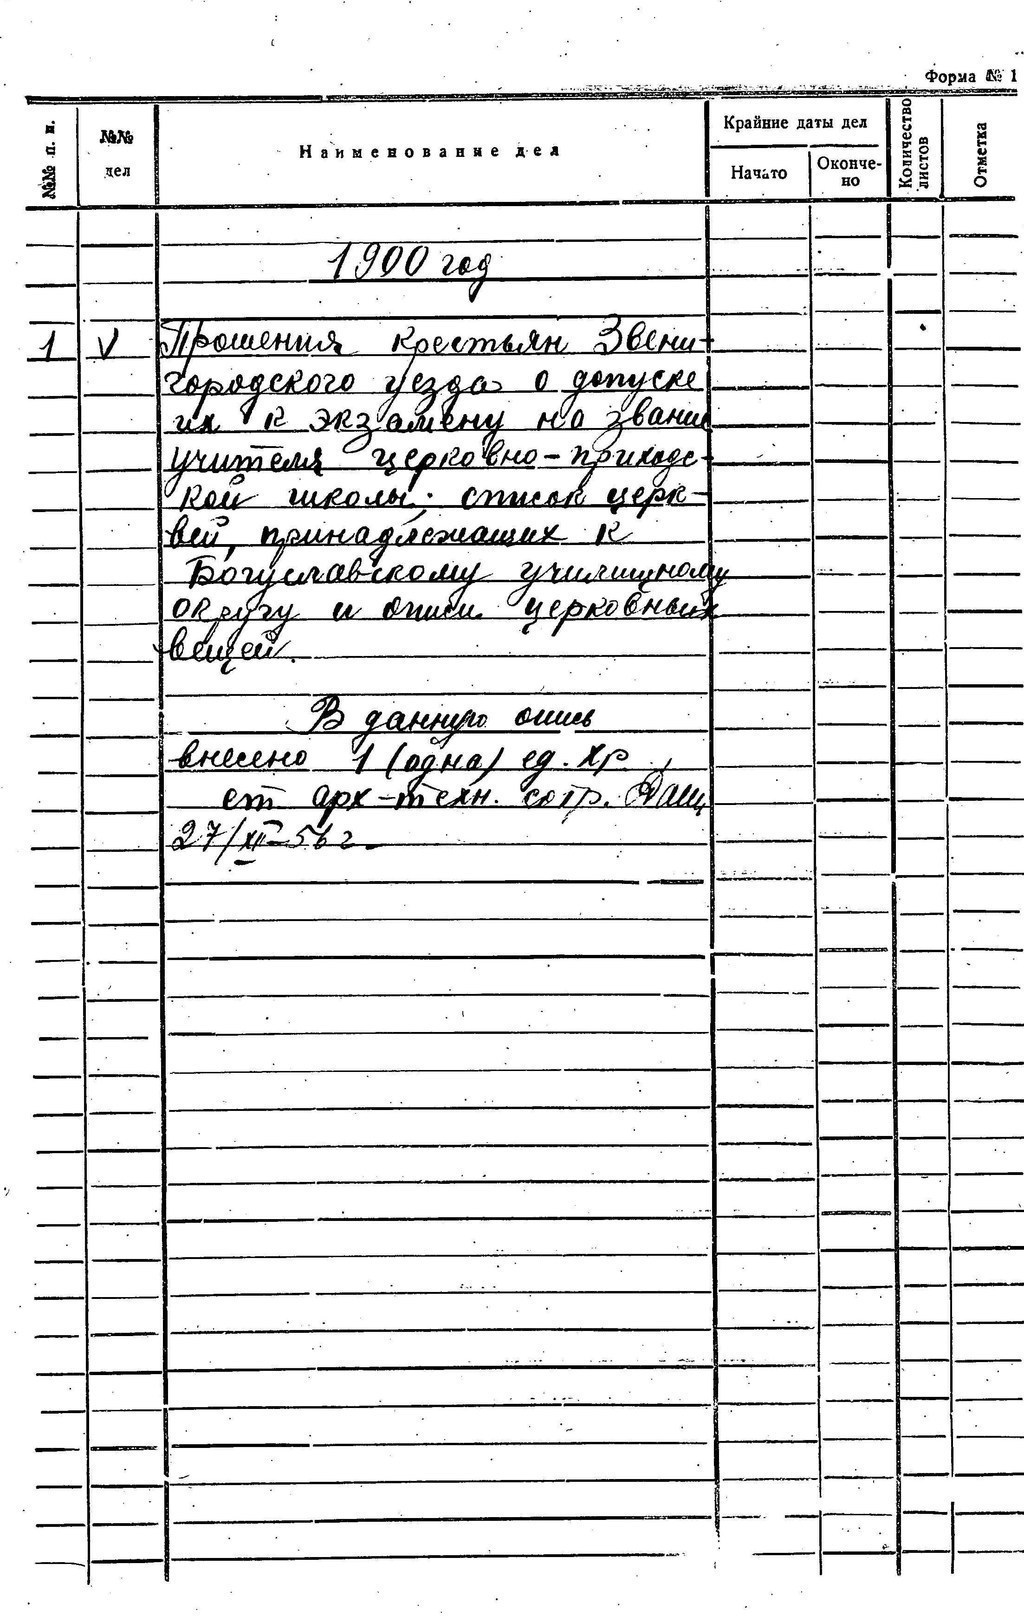 Форма № 1
№№ п. п.
№№ дел
Наименование дел
Крайние даты дел
Начато
Окончено
Количество листов
Отметка
1900 год
1 V Прошения крестьян Звени-
городского уезда о допуске
их к экзамену на звание
учителя церковно-приходс-
кой школы; список церк-
вей, принадлежащих к
Богуславскому училищному
округу и описи церковных
вещей.
В данную опись
внесено 1 (одна) ед. хр.
ст. арх-техн. сотр.
27/XII-56 г.